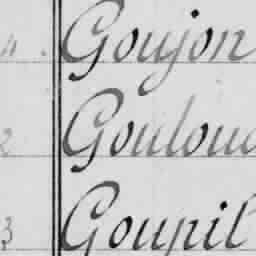 4 Goujon
2 Goulou
3 Goupil